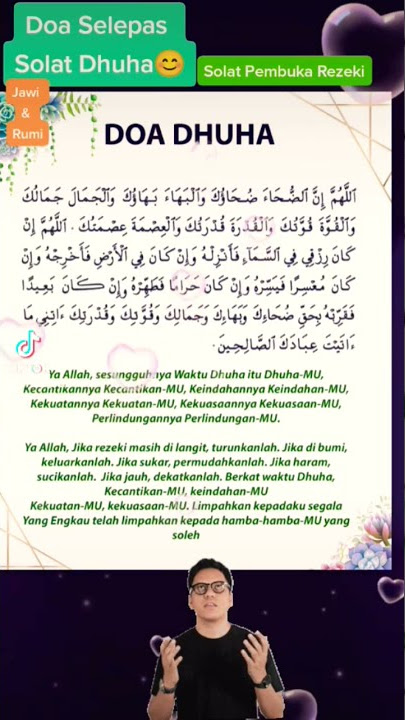 Doa Selepas
Solat Dhuha😊
Solat Pembuka Rezeki
Jawi
&
Rumi
DOA DHUHA
اَللَّهُمَّ إِنَّ الضُّحَاءَ ضُحَاؤُكَ وَالْبَهَاءَ بَهَاؤُكَ وَالْجَمَالَ جَمَالُكَ
وَالْقُوَّةَ قُوَّتُكَ وَالْقُدْرَةَ قُدْرَتُكَ وَالْعِصْمَةَ عِصْمَتُكَ . اَللَّهُمَّ إِنْ
كَانَ رِزْقِي فِي السَّمَاءِ فَأَنْزِلْهُ وَإِنْ كَانَ فِي الْأَرْضِ فَأَخْرِجْهُ وَإِنْ
كَانَ مُعْسِرًا فَيَسِّرْهُ وَإِنْ كَانَ حَرَامًا فَطَهِّرْهُ وَإِنْ كَانَ بَعِيدًا
فَقَرِّبْهُ بِحَقِّ ضُحَاءِكَ وَبَهَاءِكَ وَجَمَالِكَ وَقُوَّتِكَ وَقُدْرَتِكَ ءَاتِنِي مَا
ءَاتَيْتَ عِبَادَكَ الصَّالِحِينَ .
Ya Allah, sesungguhnya Waktu Dhuha itu Dhuha-MU,
Kecantikannya Kecantikan-MU, Keindahannya Keindahan-MU,
Kekuatannya Kekuatan-MU, Kekuasaannya Kekuasaan-MU,
Perlindungannya Perlindungan-MU.
Ya Allah, Jika rezeki masih di langit, turunkanlah. Jika di bumi,
keluarkanlah. Jika sukar, permudahkanlah. Jika haram,
sucikanlah. Jika jauh, dekatkanlah. Berkat waktu Dhuha,
Kecantikan-MU, keindahan-MU
Kekuatan-MU, kekuasaan-MU. Limpahkan kepadaku segala
Yang Engkau telah limpahkan kepada hamba-hamba-MU yang
soleh